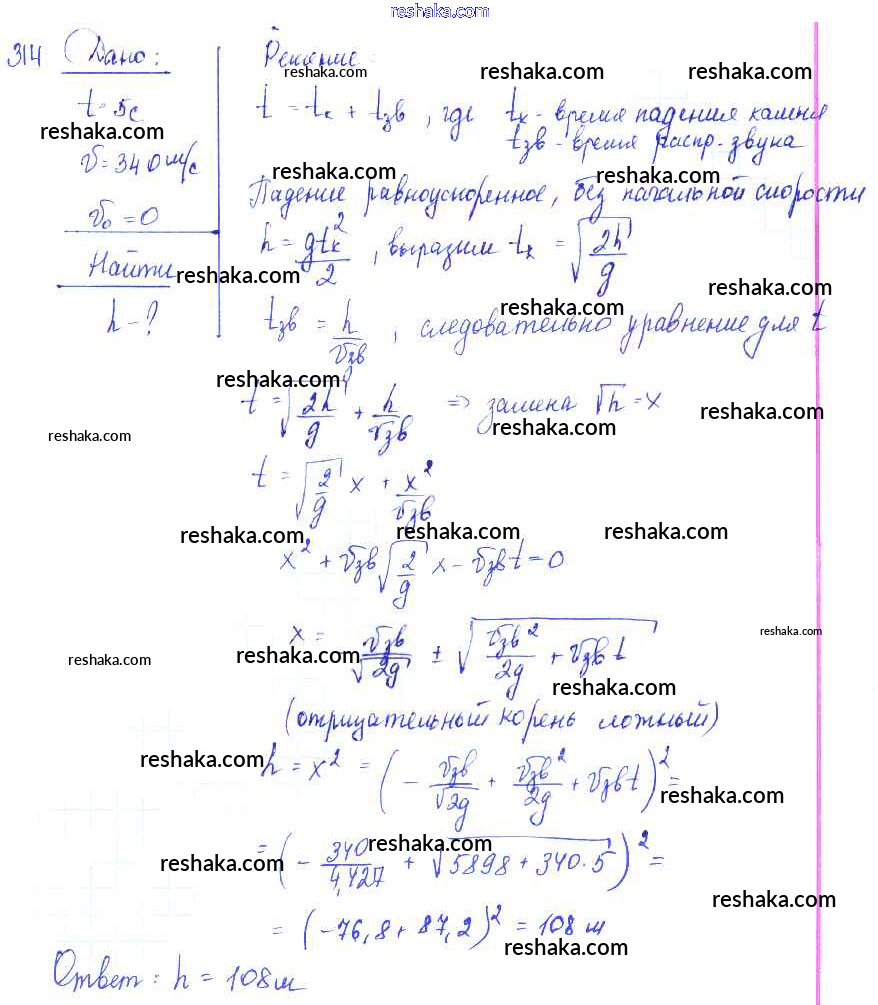 reshaka.com
314 Дано: Решение:
reshaka.com reshaka.com reshaka.com
t = 5с t = tк + tзв, где tк - время падения камня
reshaka.com reshaka.com
tзв - время распр. звука
v = 340 м/с
reshaka.com reshaka.com
Падение равноускоренное, без начальной скорости
v₀ = 0
h = gtк²/2, выразим tк = √(2h/g)
Найти
reshaka.com reshaka.com reshaka.com
h - ?
tзв = h/vзв, следовательно уравнение для t
reshaka.com
t = √(2h/g) + h/vзв ⇒ замена √h = x
reshaka.com reshaka.com reshaka.com
t = √(2/g) x + x²/vзв
reshaka.com reshaka.com reshaka.com
x² + vзв √(2/g) x - vзв t = 0
reshaka.com
x = vзв/√2g ± √(vзв²/2g + vзв t)
reshaka.com reshaka.com reshaka.com
(отрицательный корень ложный)
reshaka.com
h = x² = (- vзв/√2g + vзв²/2g + vзв t)² =
reshaka.com
= (- 340/4,427 + √(5898 + 340·5))² =
reshaka.com reshaka.com
reshaka.com
= (-76,8 + 87,2)² = 108 м
reshaka.com
Ответ: h = 108 м